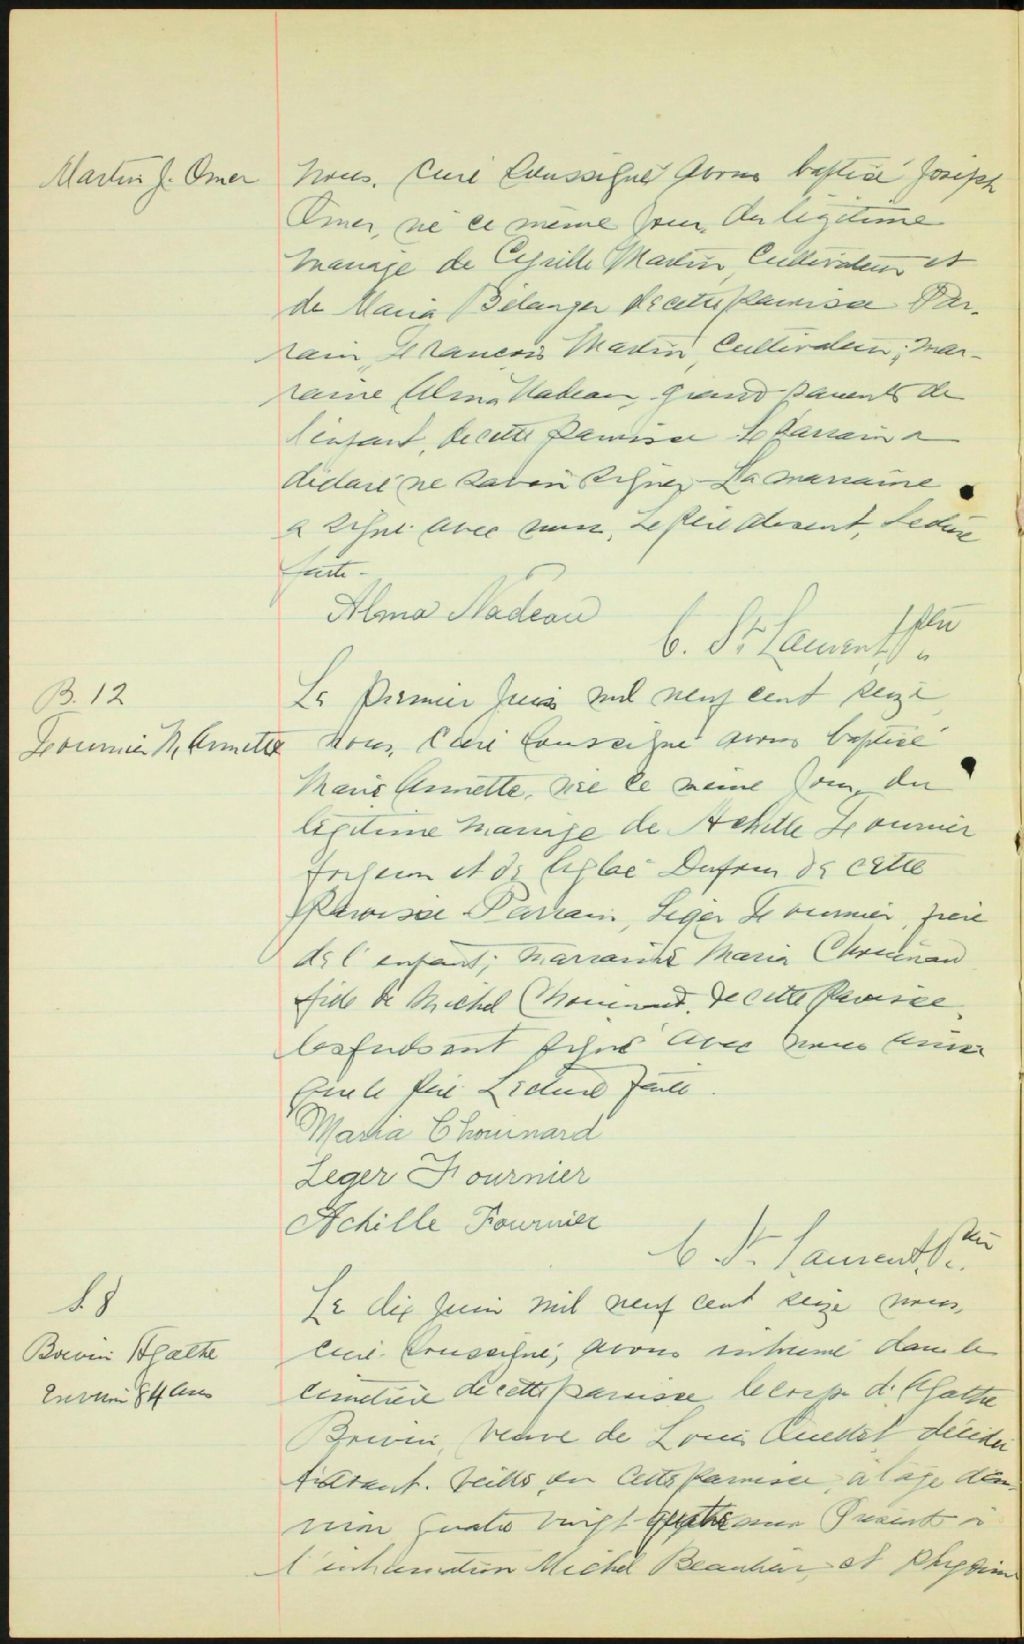 Martin J. Omer
nous, curé soussigné avons baptisé Joseph
Omer, né ce même jour, du légitime
mariage de Cyrille Martin, cultivateur et
de Maria Bélanger de cette paroisse Par-
rain, François Martin, cultivateur; mar-
raine Alma Nadeau, grand-parents de
l'enfant, de cette paroisse Le parrain a
déclaré ne savoir signer. La marraine
a signé avec nous, Le père absent, Lecture
faite.
Alma Nadeau
C. St Laurent, Ptre
B. 12
Fournier M. Annette
Le premier Juin mil neuf cent seize
nous, curé soussigné avons baptisé
Marie Annette, née ce même jour, du
légitime mariage de Achille Fournier
forgeron et de Dufour de cette
paroisse Parrain, Léger Fournier, frère
de l'enfant; marraine Maria Chouinard
fille de Michel Chouinard, de cette paroisse,
lesquels ont signé avec nous ainsi
que le père Lecture faite.
Maria Chouinard
Leger Fournier
Achille Fournier
C. St. Laurent, Ptre
S. 8
Boivin Agathe
Environ 84 ans
Le dix juin mil neuf cent seize nous,
curé soussigné, avons inhumé dans le
cimetière de cette paroisse le corps d'Agathe
Boivin, veuve de Louis Ouellet, décédée
l'avant-veille en cette paroisse, à l'âge d'en-
viron quatre vingt quatre ans Présents à
l'inhumation Michel Beaulieu, et